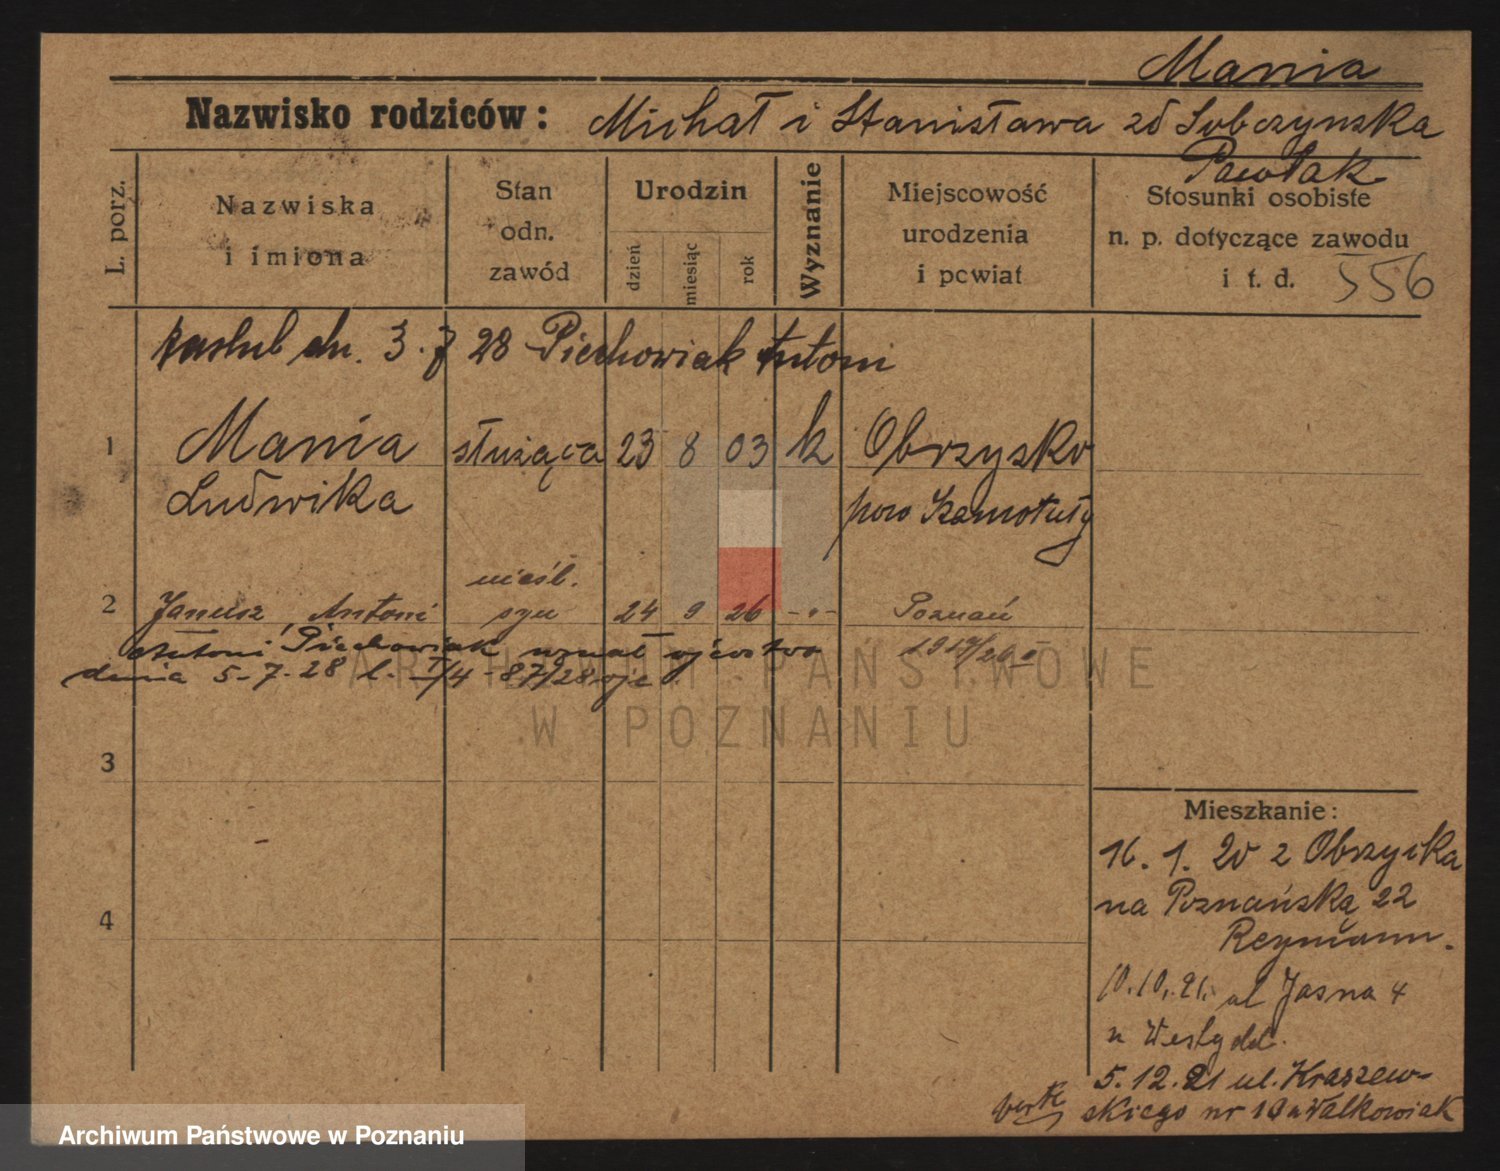 Mania
Nazwisko rodziców: Michał i Stanisława zd Sobczynska
Pawlak
L. porz.
Nazwiska i imiona
Stan odn. zawód
Urodzin
dzień
miesiąc
rok
Wyznanie
Miejscowość urodzenia i powiat
Stosunki osobiste
n. p. dotyczące zawodu
i t. d. 556
zaslub dn. 3.7 28 Piechowiak Antoni
1 Mania służąca 23 8 03 k Obrzysko
Ludwika pow Szamotuły
nieśl.
2 Janusz, Antoni syn 24 9 26 -"- Poznań
Antoni Piechowiak uznał ojcostwo
dnia 5.7.28 l.
ARCHIWUM PAŃSTWOWE
W POZNANIU
3
4
Mieszkanie:
16. 1. 20 z Obrzycka
na Poznańską 22
Reymann.
10.10.21. ul Jasna 4
5.12.21 ul. Kraszew-
skiego nr 10 u Walkowiak
Archiwum Państwowe w Poznaniu